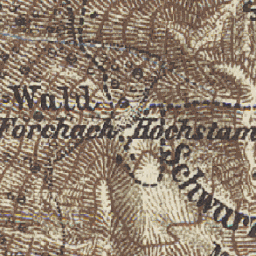 Wald
Forchach Hochstam
Schwarz